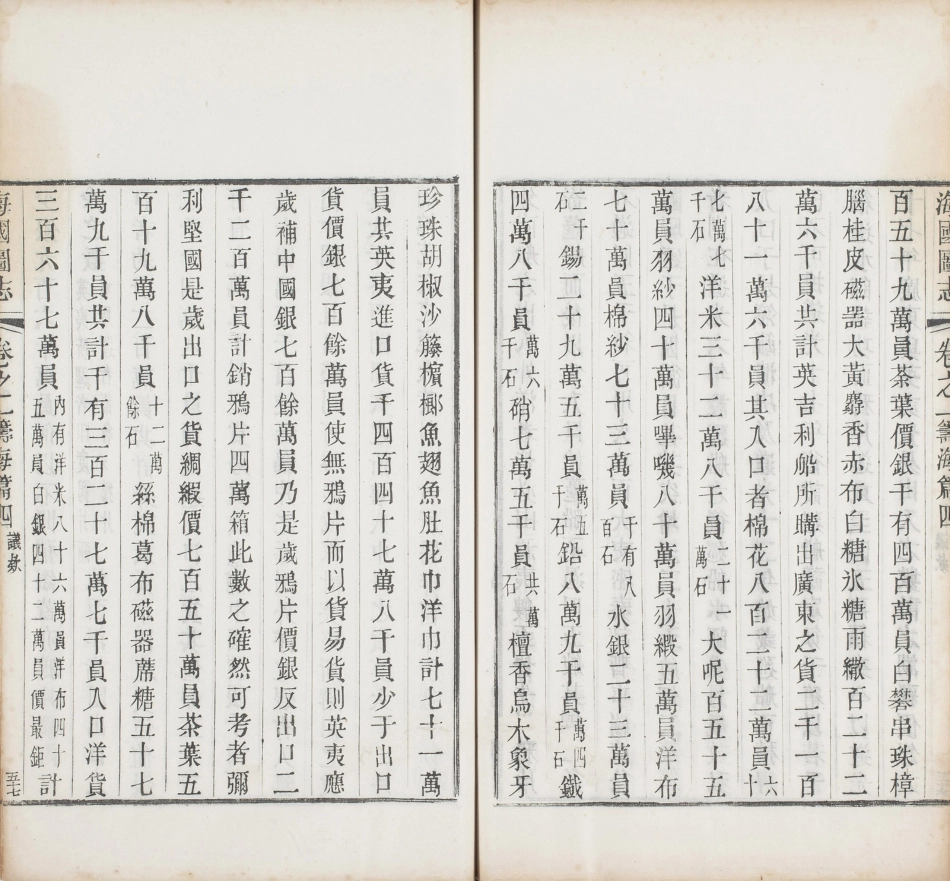 海國圖志 卷之二 籌海篇四
百五十九萬員茶葉價銀千有四百萬員白礬串珠樟
腦桂皮磁器大黃麝香赤布白糖氷糖雨繖百二十二
萬六千員共計英吉利船所購出廣東之貨二千一百
八十一萬六千員其入口者棉花八百二十二萬員六十
七萬七千石洋米三十二萬八千員二十一萬石大呢百五十五
萬員羽紗四十萬員嗶嘰八十萬員羽緞五萬員洋布
七十萬員棉紗七十三萬員千有八百石水銀二十三萬員
二千石錫二十九萬五千員萬五千石鉛八萬九千員萬四千石鐵
四萬八千員萬六千石硝七萬五千員共萬石檀香烏木象牙
珍珠胡椒沙籐檳榔魚翅魚肚花巾洋巾計七十一萬
員共英夷進口貨千四百四十七萬八千員少于出口
貨價銀七百餘萬員使無鴉片而以貨易貨則英夷應
歲補中國銀七百餘萬員乃是歲鴉片價銀反出口二
千二百萬員計銷鴉片四萬箱此數之確然可考者彌
利堅國是歲出口之貨綢緞價七百五十萬員茶葉五
百十九萬八千員十二萬餘石絲棉葛布磁器蔗糖五十七
萬九千員共計千有三百二十七萬七千員入口洋貨
三百六十七萬員內有洋米八十六萬員洋布四十五萬員白銀四十二萬員價最鉅計
海國圖志 卷之二 籌海篇四 議款 五七